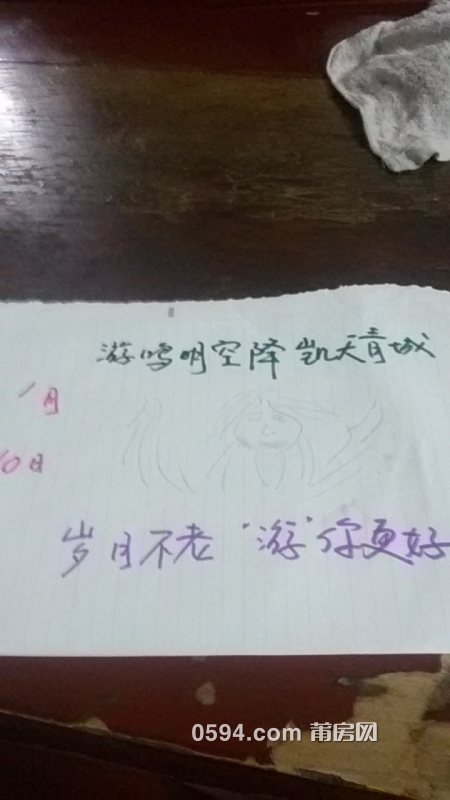 游鸣明空降凯天青城
1月
10日
岁月不老"游"你更好
0594.com 莆房网